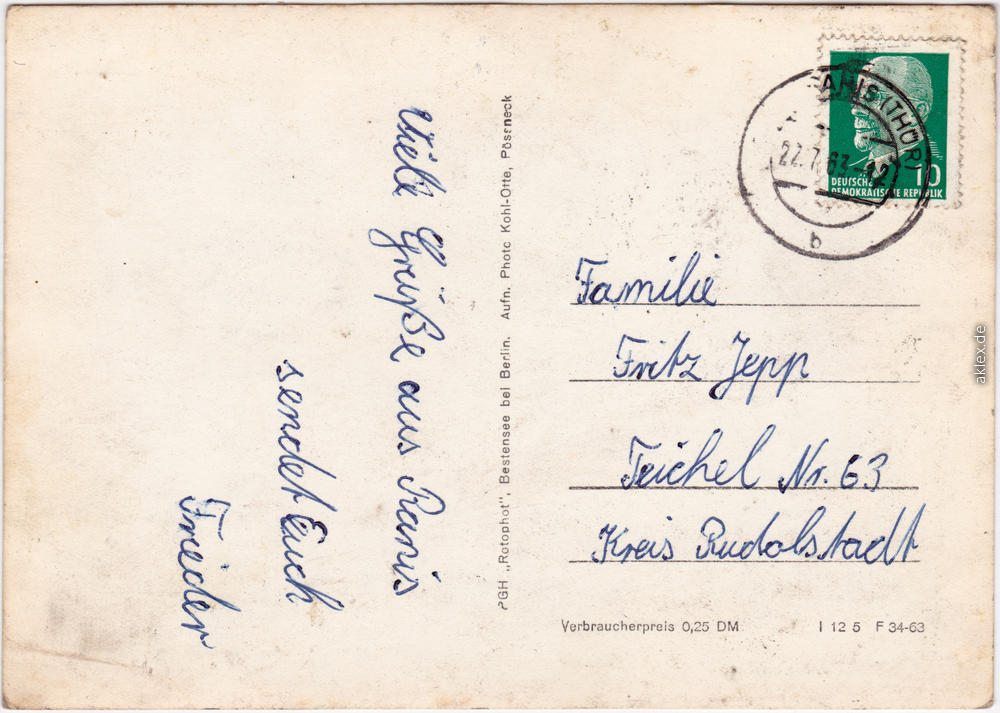 Viele Grüße aus Ranis
sendet Euch
Frieder
PGH „Rotophot", Bestensee bei Berlin. Aufn. Photo Kohl-Otte, Pössneck
ANIS (THÜR
22.7.63-12
b
10
DEUTSCHE
DEMOKRATISCHE REPUBLIK
Familie
Fritz Jepp
Teichel Nr. 63
Kreis Rudolstadt
Verbraucherpreis 0,25 DM I 12 5 F 34-63
aklex.de